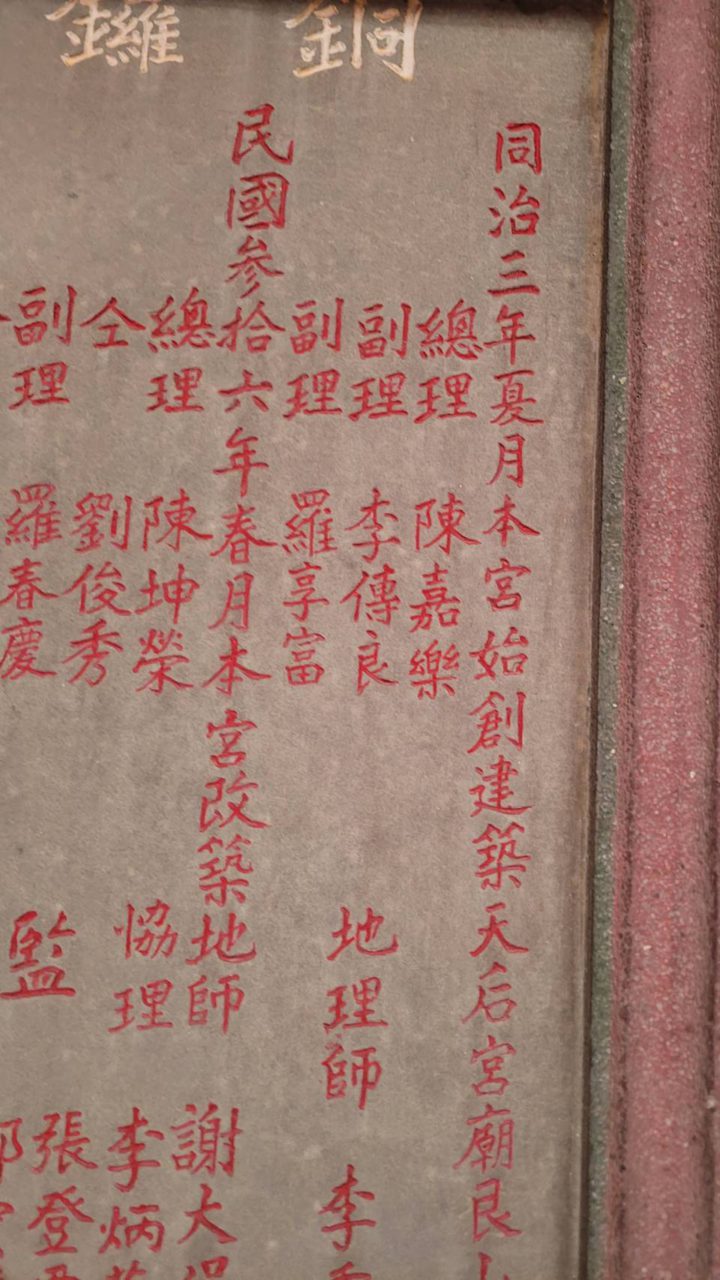 銅鑼
同治三年夏月本宮始創建築天后宮廟艮
總理 陳嘉樂
副理 李傳良 地理師 李
副理 羅享富
民國參拾六年春月本宮改築地師 謝大
總理 陳坤榮 協理 李炳
仝 劉俊秀 張登
副理 羅春慶 監